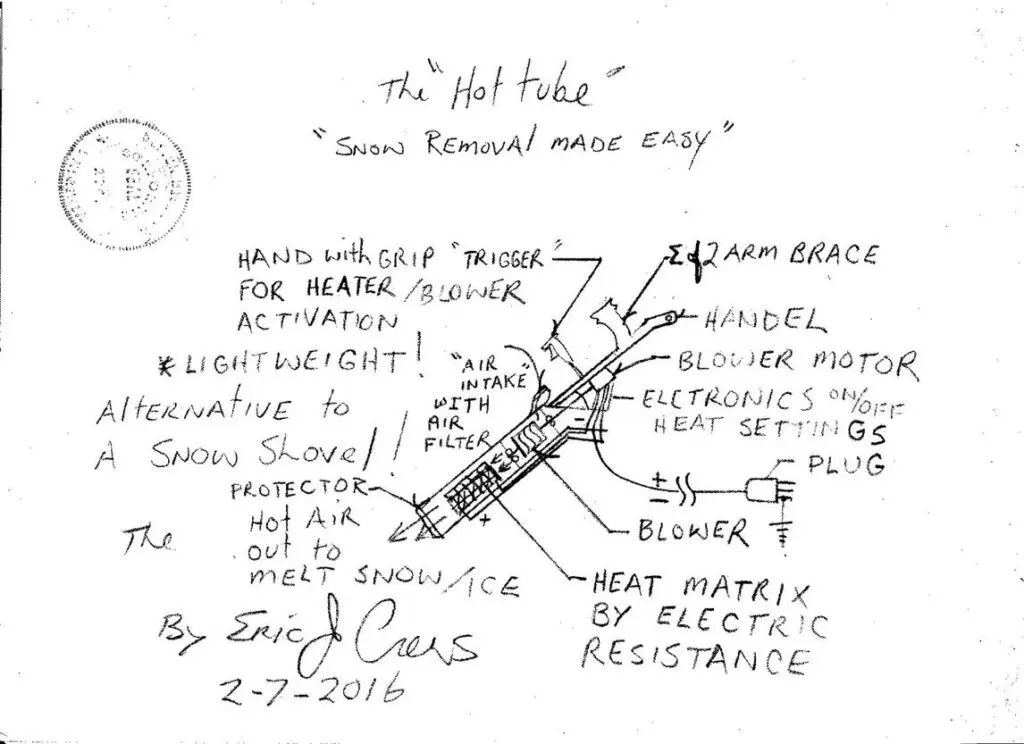 The "Hot tube"
"SNOW REMOVAL MADE EASY"
HAND with GRIP "TRIGGER"
FOR HEATER/BLOWER
ACTIVATION
ARM BRACE
HANDEL
BLOWER MOTOR
ELCTRONICS ON/OFF
HEAT SETTINGS
PLUG
+
-
BLOWER
HEAT MATRIX
BY ELECTRIC
RESISTANCE
"AIR
INTAKE"
WITH
AIR
FILTER
-
+
* LIGHTWEIGHT!
AlTERNATIVE to
A SNOW SHOVEL!!
PROTECTOR
Hot AIR
out to
MELT SNOW/ICE
The
By Eric J
2-7-2016